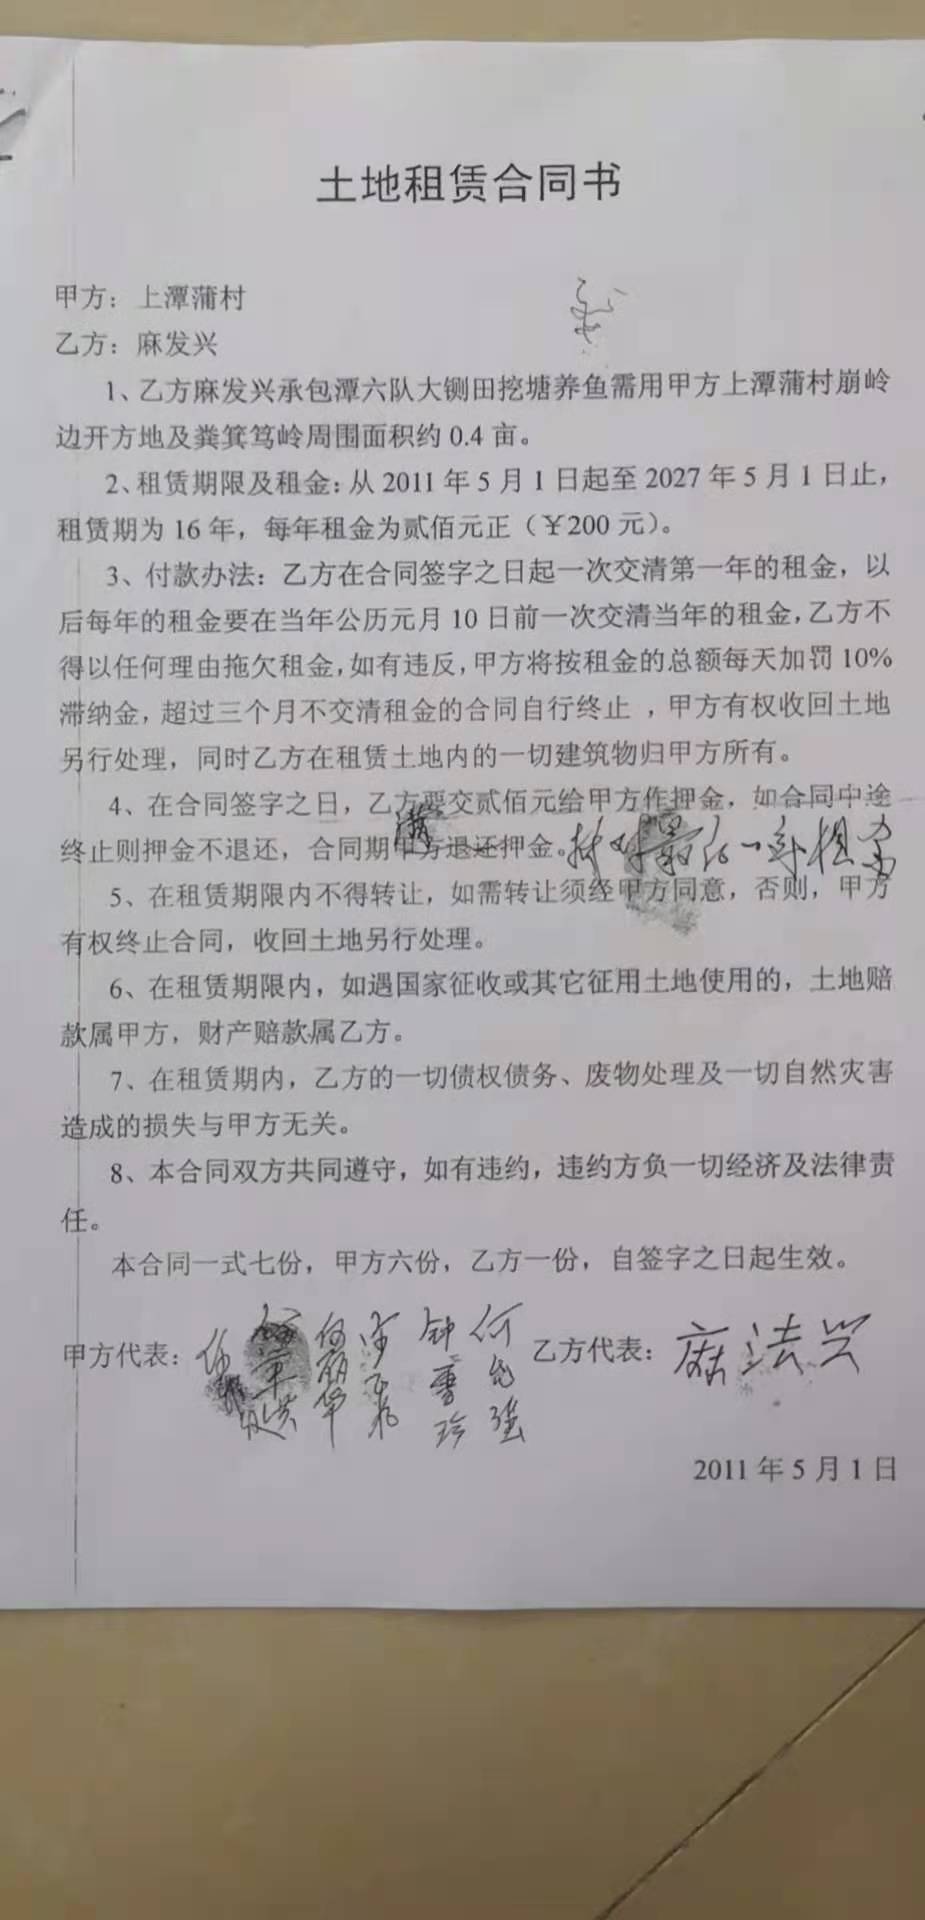 土地租赁合同书
甲方：上潭蒲村
乙方：麻发兴
1、乙方麻发兴承包潭六队大铡田挖塘养鱼需用甲方上潭蒲村崩岭
边开方地及粪箕笃岭周围面积约 0.4 亩。
2、租赁期限及租金：从 2011 年 5 月 1 日起至 2027 年 5 月 1 日止，
租赁期为 16 年，每年租金为贰佰元正（￥200 元）。
3、付款办法：乙方在合同签字之日起一次交清第一年的租金，以
后每年的租金要在当年公历元月 10 日前一次交清当年的租金，乙方不
得以任何理由拖欠租金，如有违反，甲方将按租金的总额每天加罚 10%
滞纳金，超过三个月不交清租金的合同自行终止 ，甲方有权收回土地
另行处理，同时乙方在租赁土地内的一切建筑物归甲方所有。
4、在合同签字之日，乙方要交贰佰元给甲方作押金，如合同中途
终止则押金不退还，合同期满甲方退还押金。抵对最后一年租金
5、在租赁期限内不得转让，如需转让须经甲方同意，否则，甲方
有权终止合同，收回土地另行处理。
6、在租赁期限内，如遇国家征收或其它征用土地使用的，土地赔
款属甲方，财产赔款属乙方。
7、在租赁期内，乙方的一切债权债务、废物处理及一切自然灾害
造成的损失与甲方无关。
8、本合同双方共同遵守，如有违约，违约方负一切经济及法律责
任。
本合同一式七份，甲方六份，乙方一份，自签字之日起生效。
甲方代表： 何丽华 乙方代表：麻法兴
2011 年 5 月 1 日